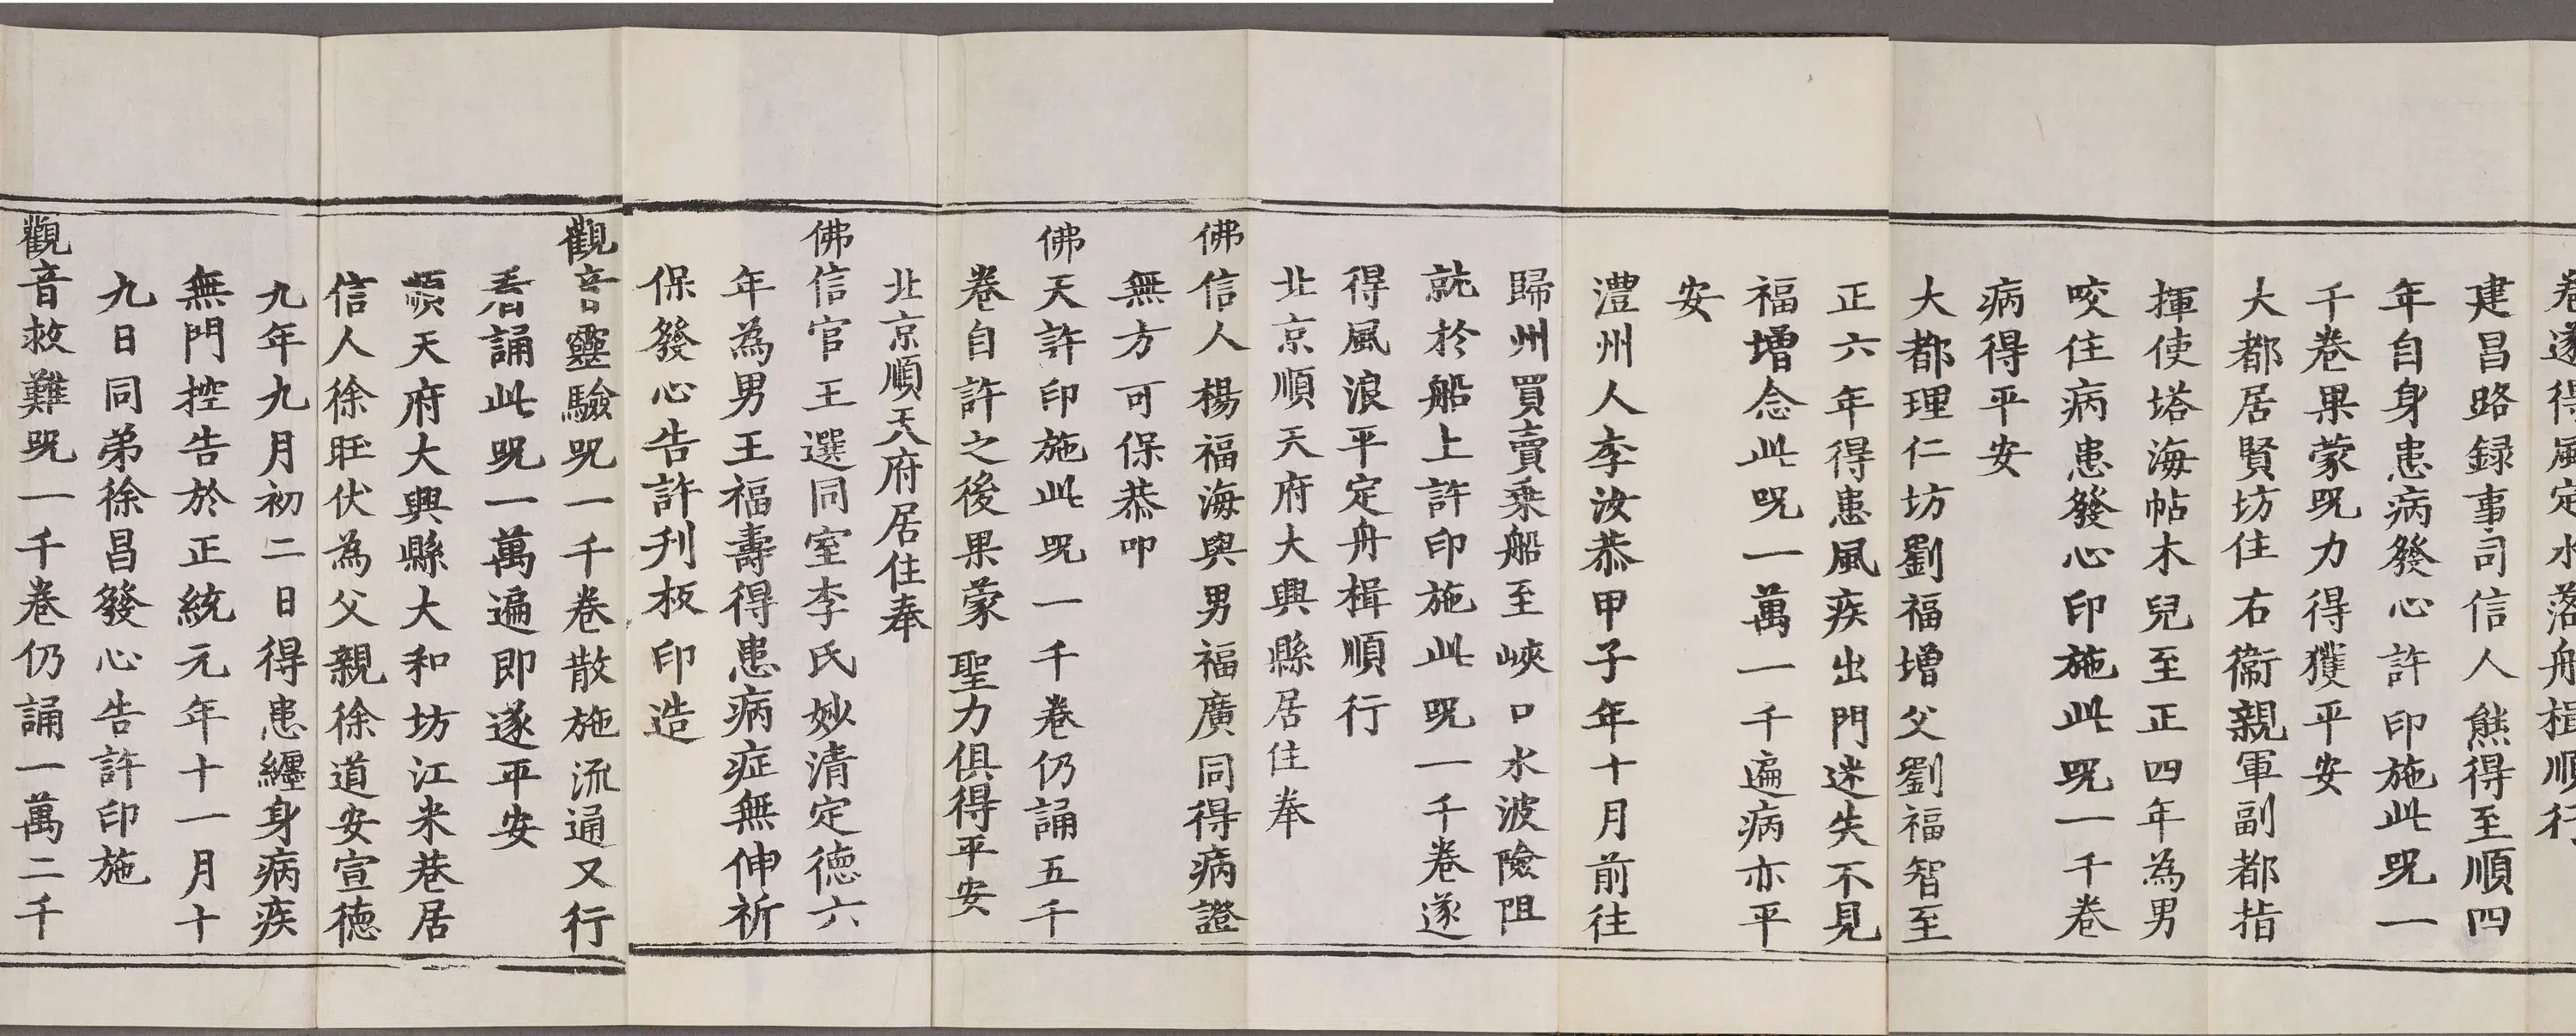 卷遂得風定水落舟楫順行
建昌路録事司信人熊得至順四
年自身患病發心許印施此呪一
千卷果蒙呪力得獲平安
大都居賢坊住右衞親軍副都指
揮使塔海帖木兒至正四年為男
咬住病患發心印施此呪一千卷
病得平安
大都理仁坊劉福增父劉福智至
正六年得患風疾出門迷失不見
福增念此呪一萬一千遍病亦平
安
澧州人李汝恭甲子年十月前往
歸州買賣乗船至峽口水波險阻
就於船上許印施此呪一千卷遂
得風浪平定舟楫順行
北京順天府大興縣居住奉
佛信人楊福海與男福廣同得病證
無方可保恭叩
佛天許印施此呪一千卷仍誦五千
卷自許之後果蒙 聖力俱得平安
北京順天府居住奉
佛信官王選同室李氏妙清定德六
年為男王福壽得患病症無伸祈
保發心告許刋板印造
觀音靈驗呪一千卷散施流通又行
看誦此呪一萬遍即遂平安
順天府大興縣大和坊江米巷居
信人徐旺伏為父親徐道安宣德
九年九月初二日得患纒身病疾
無門控告於正統元年十一月十
九日同弟徐昌發心告許印施
觀音救難呪一千卷仍誦一萬二千